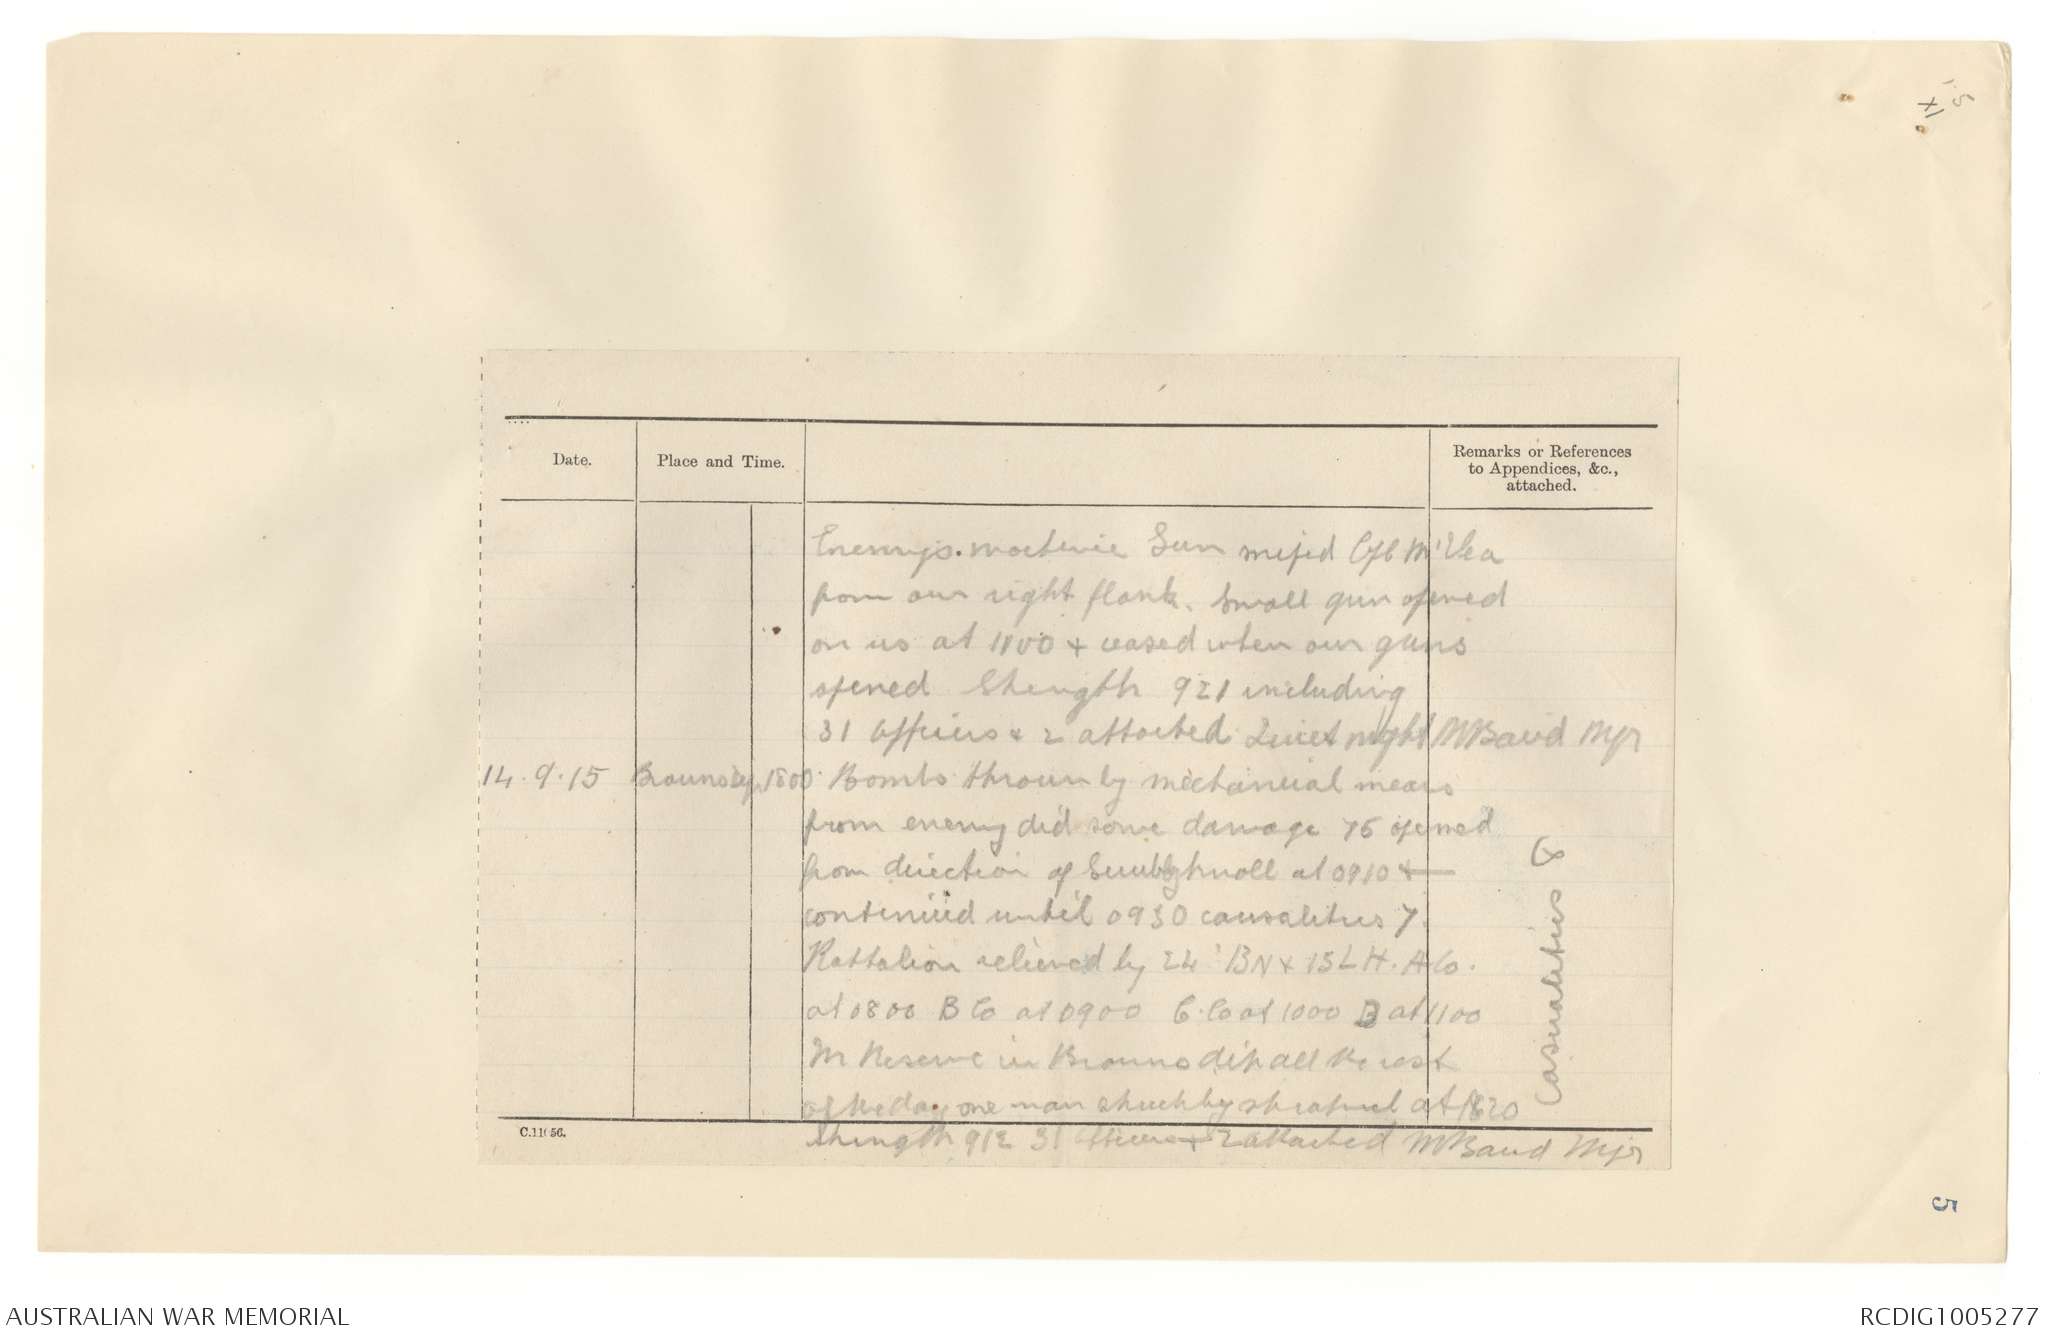 Date.
Place and Time.
Remarks or References
to Appendices, &c.,
attached.
Enemys machine Gun Cpl McVea
from our right flank. Small gun opened
on us at 1100 + ceased when our guns
opened Strength 921 including
31 Officers & 2 attached Quiet night M Baird Mjr
14.9.15 Brauns 1800 Bombs thrown by mechanical means
from enemy did some damage 75 opened
from direction of Scrubby knoll at 0910 +
continued until 0930 causalities 7.
Battalion relieved by 24 BN + 15 L H. A Co.
at 0800 B Co at 0900 C. Co at 1000 D at 1100
In Reserve in Brauns dip all the rest
of the day one man struck by shrapnel at 1820
Strength 912 31 Officers + 2 attached M Baird Mjr
Casualties 8
C.11056.
5
AUSTRALIAN WAR MEMORIAL
RCDIG1005277